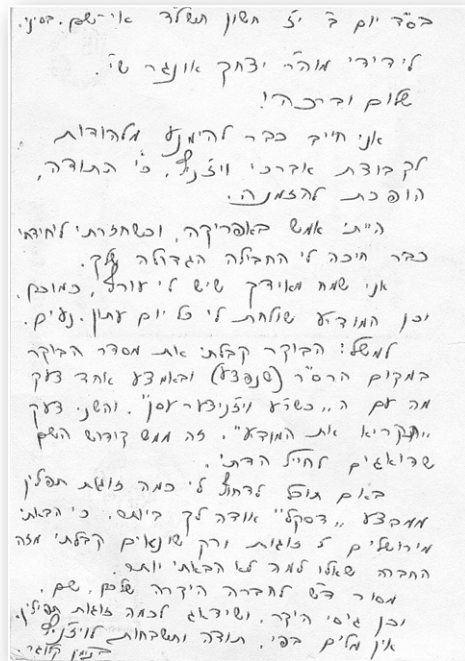 בס"ד יום ב' יז' חשון תשל"ד אי-שם. בסיני.
לידידי מוה"ר יצחק אונגר שי'.
שלום וברכה!
אני חייב כבר להימנע מלהודות
לקבוצת אברכי ויז'ניץ, כי התודה,
הופכת להזמנה.
הייתי אמש באפריקה, וכשחזרתי ליחידתי
כבר חיכה לי החבילה הגדולה שלך.
אני שמח מאידך שיש לי עורף, כמוכם.
וכן המודיע שולחת לי כל יום עתון. נעים.
למשל: הבוקר קבלתי את מסדר הבוקר
במקום הרס"ר (שנפצע) ובאמצע אחד צעק
מה עם ה"כשר'ע וויזניצער עסן". והשני צעק
"תקריא את המודיע". זה ממש קידוש השם
שדואגים לחייל הדתי.
באם תוכל לדחוף לי כמה זוגות תפילין
ממבצע "דסקל" אודה לך ביותר. כי הבאתי
מירושלים 7 זוגות ורק שונאים קבלתי מזה
החברה שאלו למה לא הבאתי יותר.
מסור ד"ש לחברה היקרה שלכם. שם.
וכן גיסי היקר. ושידאג לכמה זוגות תפילין.
אין מלים בפי. תודה ותשבחות לויז'ניץ
בנימין קלוגר.